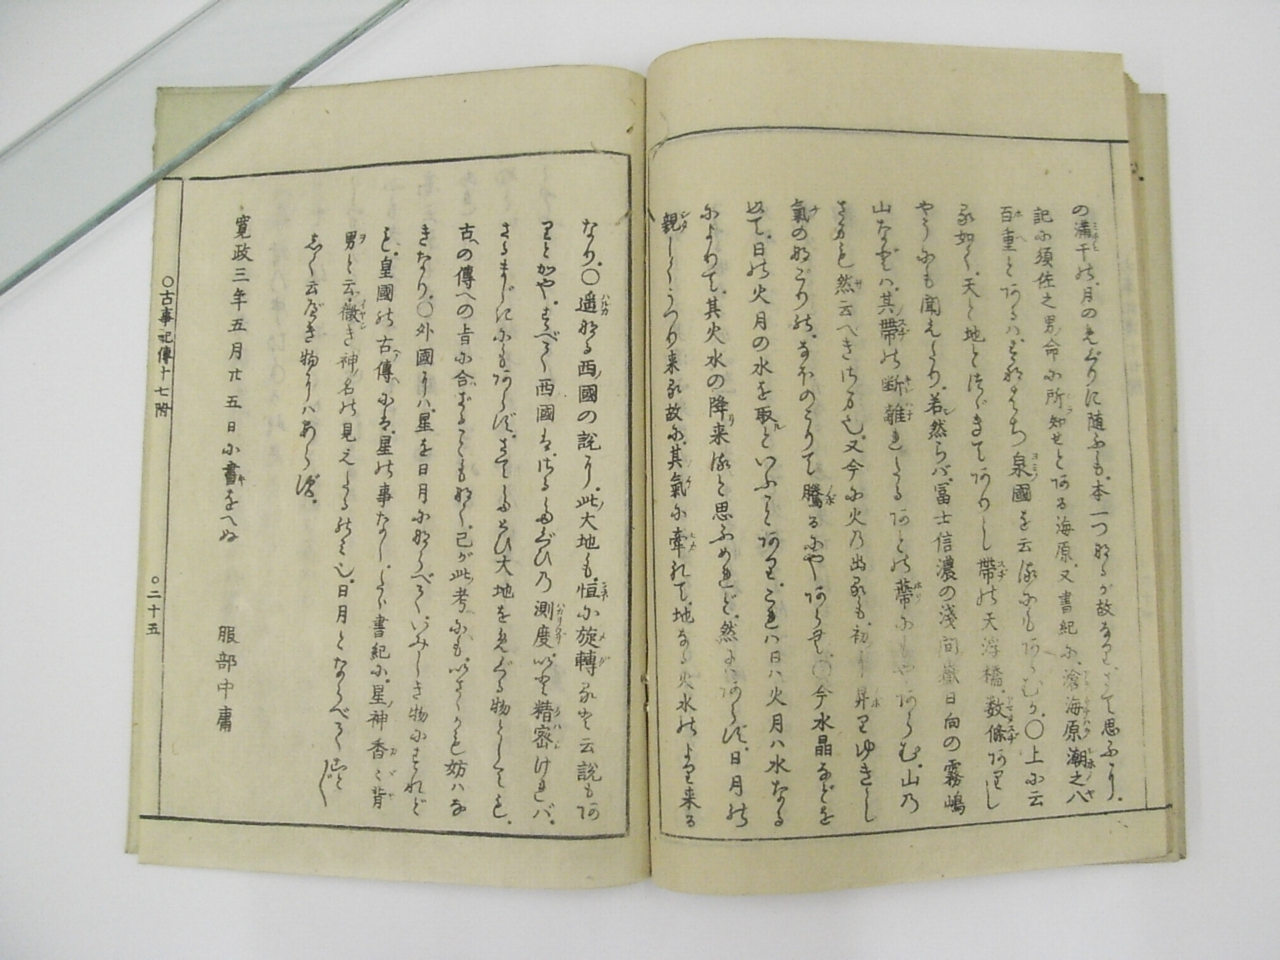 の満干の、月のめぐりに随ふも、本一つなるが故なり、さて思ふに、
記に須佐之男命に所知せとある海原、又書紀に、滄海原潮之八
百重とあるは、すなはち泉國を云るにもあらむか、〇上に云
る如く、天と地とつゞきてありし帶の天浮橋、数條ありし
やうにも聞えたり、若然らば、冨士信濃の淺間嶽日向の霧嶋
山などは、其帶の断離れたるあとの蔕にもやあらむ、山乃
さまも然云べきさま也、又今に火乃出るも、初メ昇りゆきし
氣のなごりの、なほのこりて騰るにやあらむ、〇今水晶などを
以て、日の火月の水を取といふことあり、これハ日ハ火月ハ水なる
によりて、其火水の降来ると思ふめれど、然にハあらず、日月の
親しくうつり来る故に、其氣に牽れて、地なる火水のより来る
なり、〇遥なる西國の説に、此大地も、恒に旋轉ると云説もあ
りとかや、すべて西國は、さるたぐひ乃測度いと精密ければ、
さるまじきにもあらず、さてたとひ大地をめぐる物としても、
古の傳への旨に合ざることもなく、己が此考にも、いさゝかも妨ハな
きなり、〇外國にハ、星を日月にならべて、いみしき物にすれど
も、皇國の古傳には、星の事なし、たゞ書紀に、星神香々背
男と云、微き神名の見えたるのみ也、日月とならべて、こと〴〵
しく云べき物にハあらず、
寛政三年五月廿五日に書をへぬ　服部中庸
〇古事記傳十七附　〇二十五